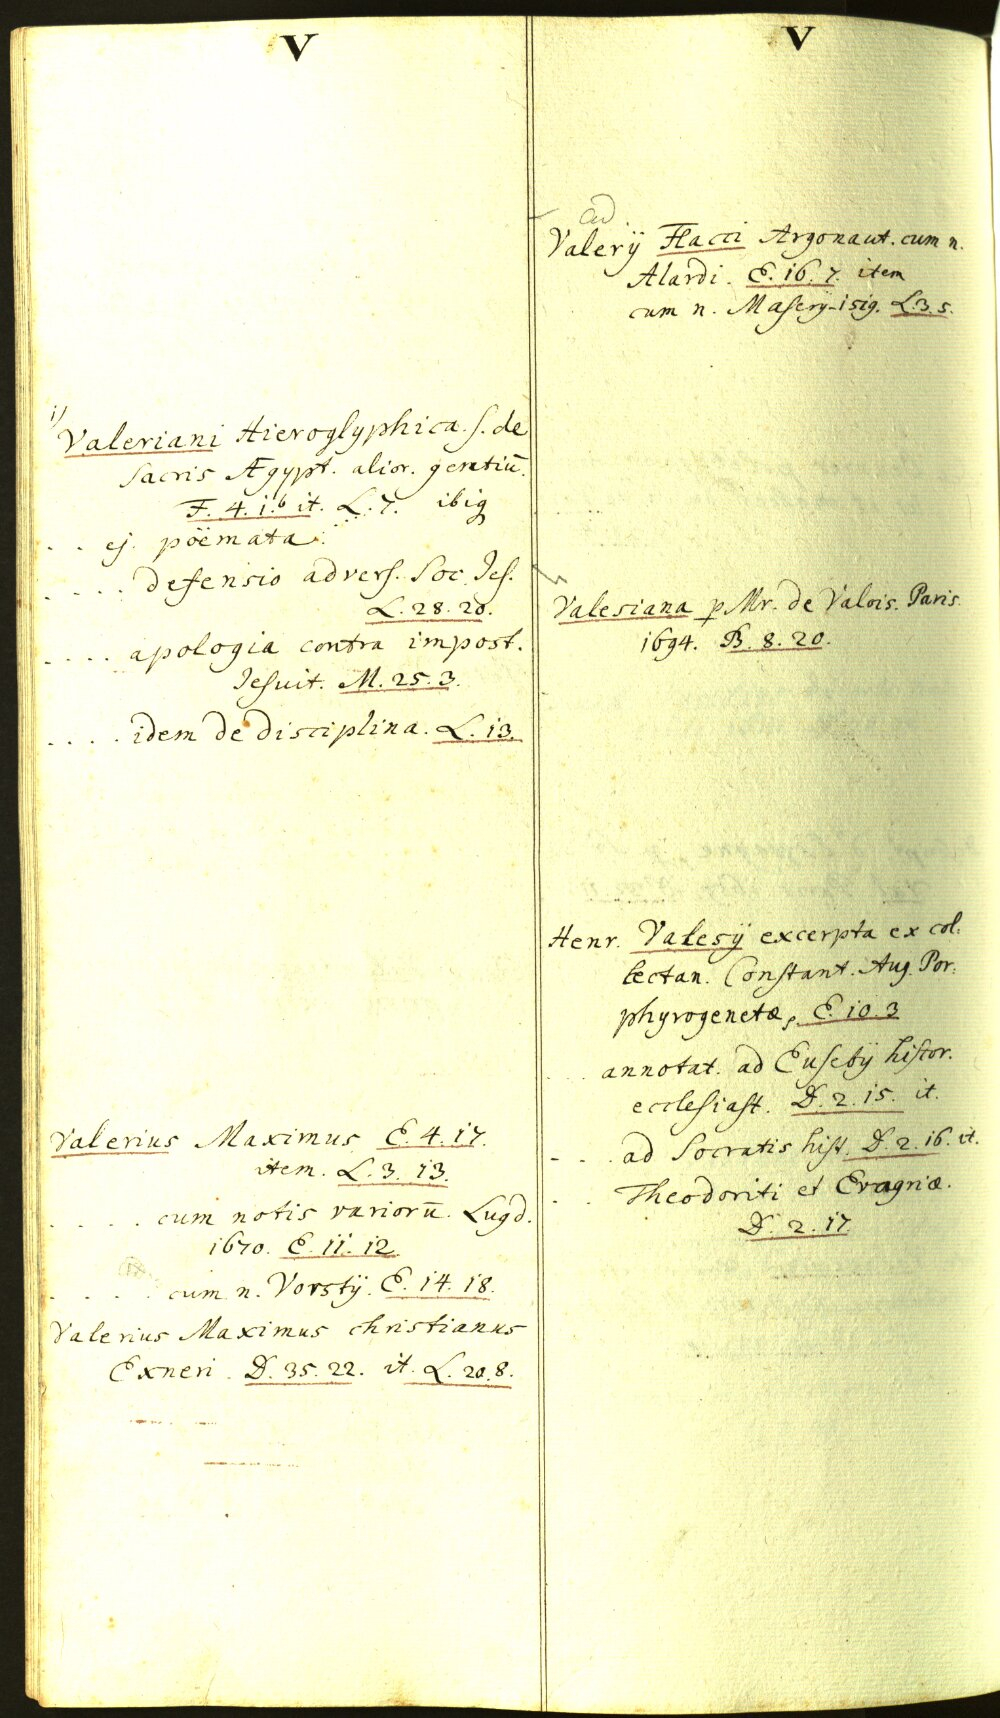 V
i)
Valeriani Hieroglyphica. s. de
sacris Ægypt. alior. gentiū.
F. 4. i.b it. L. 7. ibiq
. . ej. pöemata.
. . . . defensio advers. Soc. Jes.
L. 28. 20.
. . . . apologia contra impost.
Jesuit. M. 25. 3.
. . . . idem de disciplina. L. 13.
Valerius Maximus. E. 4. 17.
item. L. 3. 13.
. . . . cum notis variorū. Lugd.
1670. E. 11. 12.
. . . . cum n. Vorstÿ. E. 14. 18.
Valerius Maximus christianus
Exneri. D. 35. 22. it. L. 20. 8.
V
ad
Valerÿ Flacci Argonaut. cum n.
Alardi. E. 16. 7. item
cum n. L. 3. 5.
Valesiana p Mr. de Valois. Paris.
1694. B. 8. 20.
Henr. Valesÿ excerpta ex col:
lectan. Constant. Aug. Por:
phyrogenetæ, E. 10. 3
. . . annotat. ad Eusebÿ histor.
ecclesiast. D. 2. 15. it.
. . . ad Socratis hist. D. 2. 16. it.
. . Theodoriti et Evagriæ.
D. 2. 17.